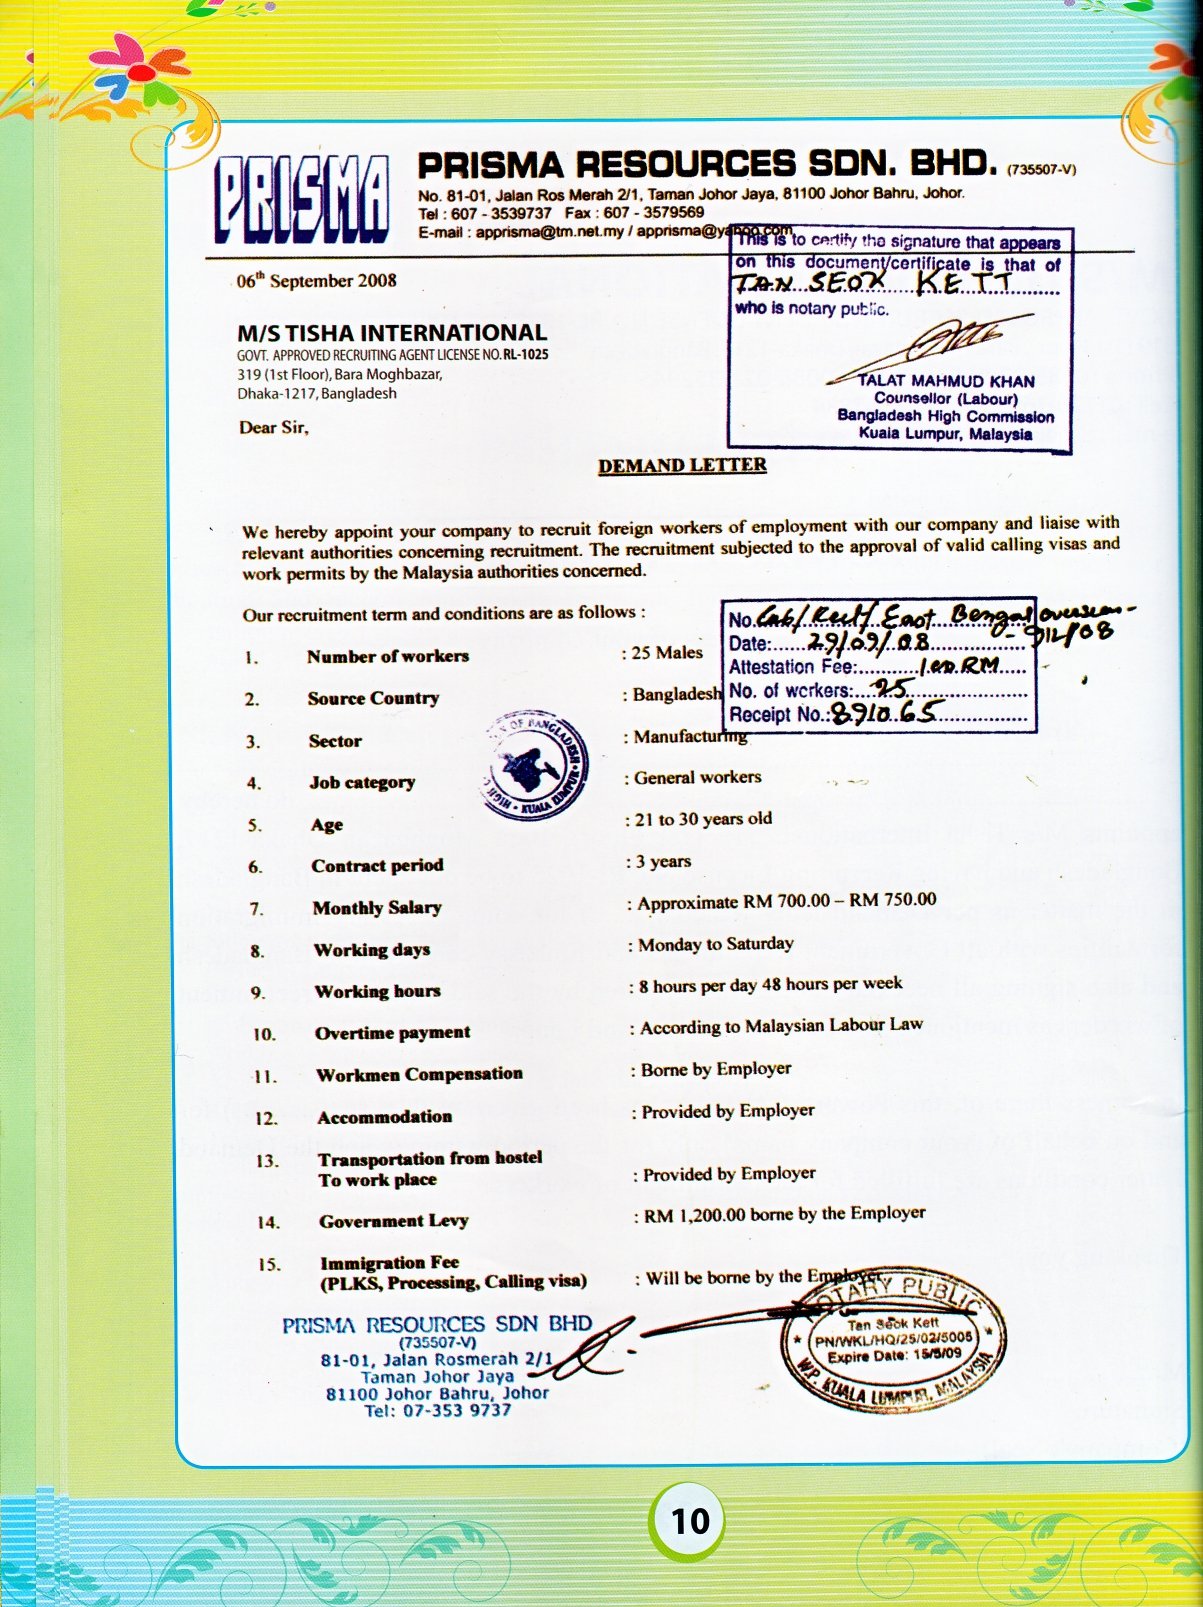 PRISMA
PRISMA RESOURCES SDN. BHD. (735507-V)
No. 81-01, Jalan Ros Merah 2/1, Taman Johor Jaya, 81100 Johor Bahru, Johor.
Tel : 607 - 3539737 Fax : 607 - 3579569
E-mail : apprisma@tm.net.my / apprisma@yahoo.com
This is to certify the signature that appears
on this document/certificate is that of
TAN SEOK KETT
who is notary public.
TALAT MAHMUD KHAN
Counsellor (Labour)
Bangladesh High Commission
Kuala Lumpur, Malaysia
06th September 2008
M/S TISHA INTERNATIONAL
GOVT. APPROVED RECRUITING AGENT LICENSE NO. RL-1025
319 (1st Floor), Bara Moghbazar,
Dhaka-1217, Bangladesh
Dear Sir,
DEMAND LETTER
We hereby appoint your company to recruit foreign workers of employment with our company and liaise with
relevant authorities concerning recruitment. The recruitment subjected to the approval of valid calling visas and
work permits by the Malaysia authorities concerned.
Our recruitment term and conditions are as follows :
No. Lab/Rect/ East Bengal overseas-
Date: 29/09/08
Attestation Fee: RM
No. of workers: 25
Receipt No.: 891065
1. Number of workers : 25 Males
2. Source Country : Bangladesh
3. Sector : Manufacturing
4. Job category : General workers
5. Age : 21 to 30 years old
6. Contract period : 3 years
7. Monthly Salary : Approximate RM 700.00 – RM 750.00
8. Working days : Monday to Saturday
9. Working hours : 8 hours per day 48 hours per week
10. Overtime payment : According to Malaysian Labour Law
11. Workmen Compensation : Borne by Employer
12. Accommodation : Provided by Employer
13. Transportation from hostel
To work place : Provided by Employer
14. Government Levy : RM 1,200.00 borne by the Employer
15. Immigration Fee
(PLKS, Processing, Calling visa) : Will be borne by the Employer
OF BANGLADESH
HIGH
KUALA LUMPUR
PRISMA RESOURCES SDN BHD
(735507-V)
81-01, Jalan Rosmerah 2/1
Taman Johor Jaya
81100 Johor Bahru, Johor
Tel: 07-353 9737
NOTARY PUBLIC
Tan Seok Kett
PN/WKL/HQ/25/02/5005
Expire Date: 15/5/09
W.P. KUALA LUMPUR, MALAYSIA
10